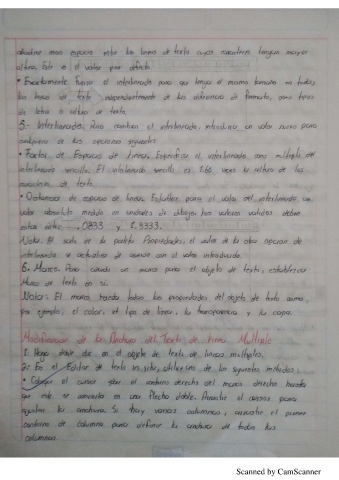 añadirse mas espacio entre las lineas de texto cuyos caracteres tengan mayor
altura. Este es el valor por defecto.
• Exactamente. Fuerza el interlineado para que tenga el mismo formato en todas
las lineas de texto, independientemente de las diferencias de formato, como tipos
de letra o altura de texto.
5.- Interlineado. Para cambiar el interlineado, introduzca un valor nuevo para
cualquiera de las opciones siguientes:
• Factor de Espacio de Lineas. Especifica el interlineado como multiplo del
interlineado sencillo. El interlineado sencillo es 1.66 veces la altura de los
caracteres de texto.
• Distancia de espacio de lineas. Establece para el valor del interlineado un
valor absoluto medido en unidades de dibujo. Los valores validos deben
estar entre .0833 y 1.3333.
Nota. Al salir de la paleta Propiedades, el valor de la otra opcion de
interlineado se actualiza de acuerdo con el valor introducido.
6. Marco. Para un marco para el objeto de texto, establezca
Marco de texto en si.
Nota: El marco hereda todas las propiedades del objeto de texto como,
por ejemplo, el color, el tipo de linea, la transparencia y la capa.
Modificacion de la Anchura del Texto de Linea Multiple
1: Haga doble clic en el objeto de texto de lineas multiples.
2: En el Editor de texto in situ, utilice uno de los siguientes metodos:
• Coloque el cursor sobre el contorno derecho del marco derecho hasta
que este se convierta en una flecha doble. Arrastre el cursor para
ajustar la anchura. Si hay varias columnas, arrastre el primer
contorno de columna para definir la anchura de todas las
columnas.
Scanned by CamScanner